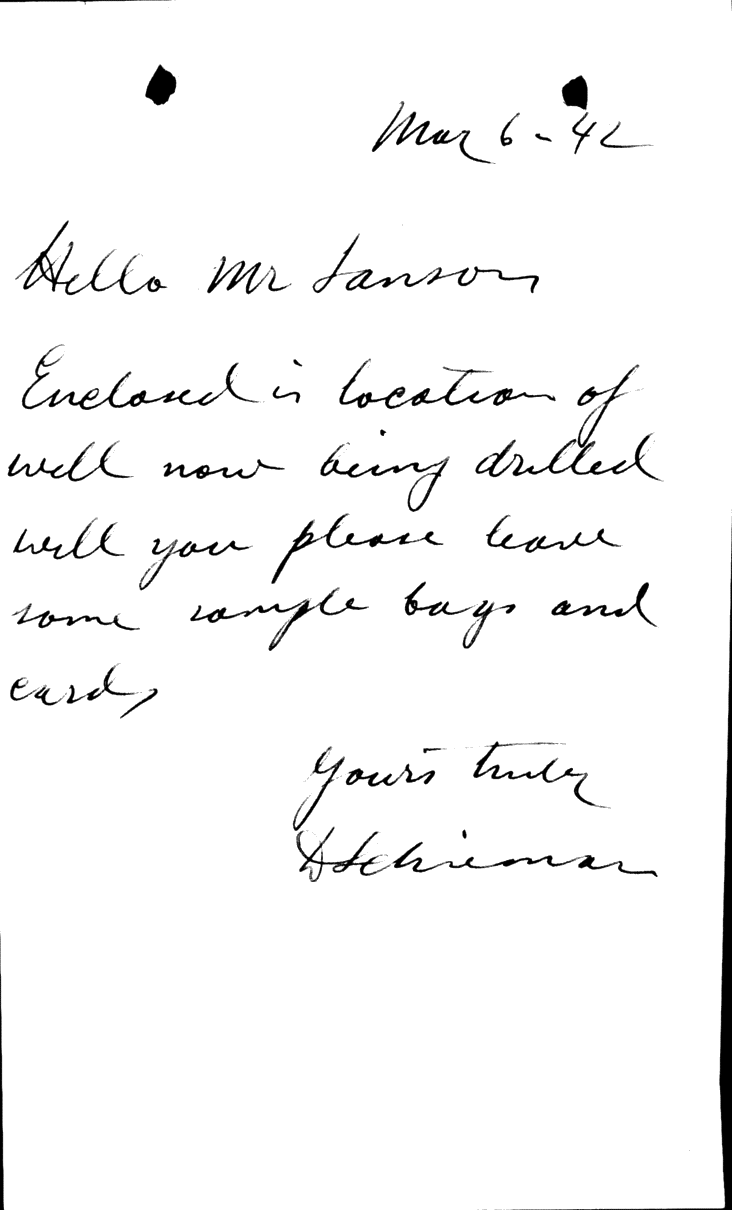 Mar 6 - 42
Hello Mr Sanson
Enclosed is location of
well now being drilled
will you please leave
some sample bags and
cards
Yours truly
D Schieman